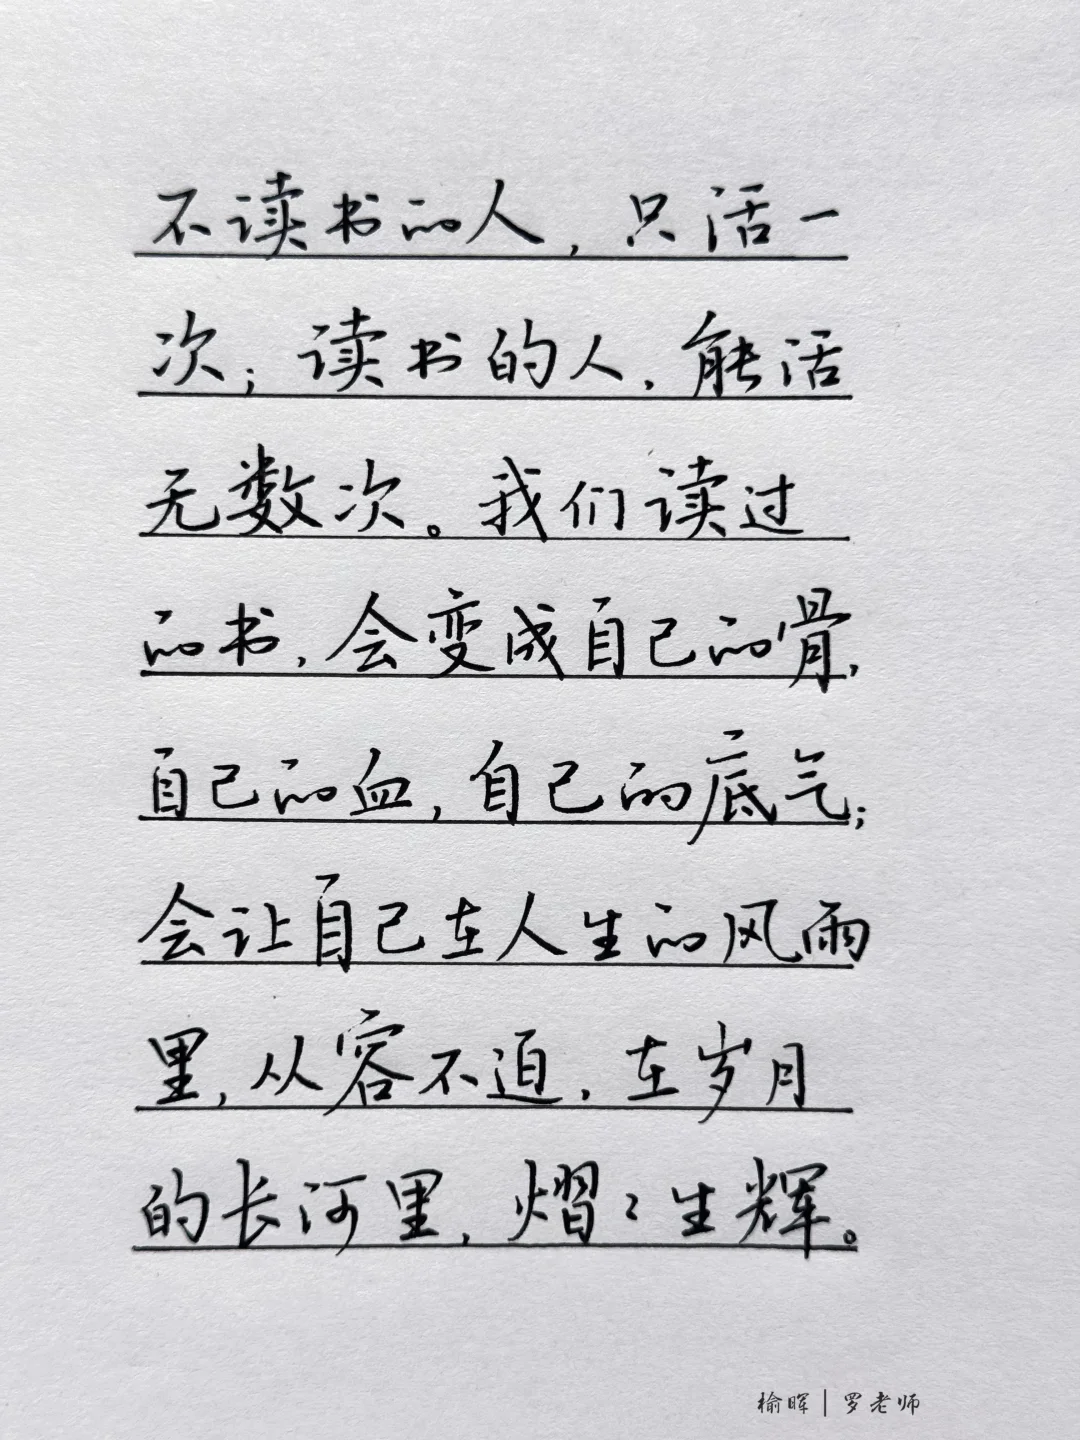 不读书的人，只活一
次；读书的人，能活
无数次。我们读过
的书，会变成自己的骨，
自己的血，自己的底气；
会让自己在人生的风雨
里，从容不迫，在岁月
的长河里，熠々生辉。
榆晖|罗老师